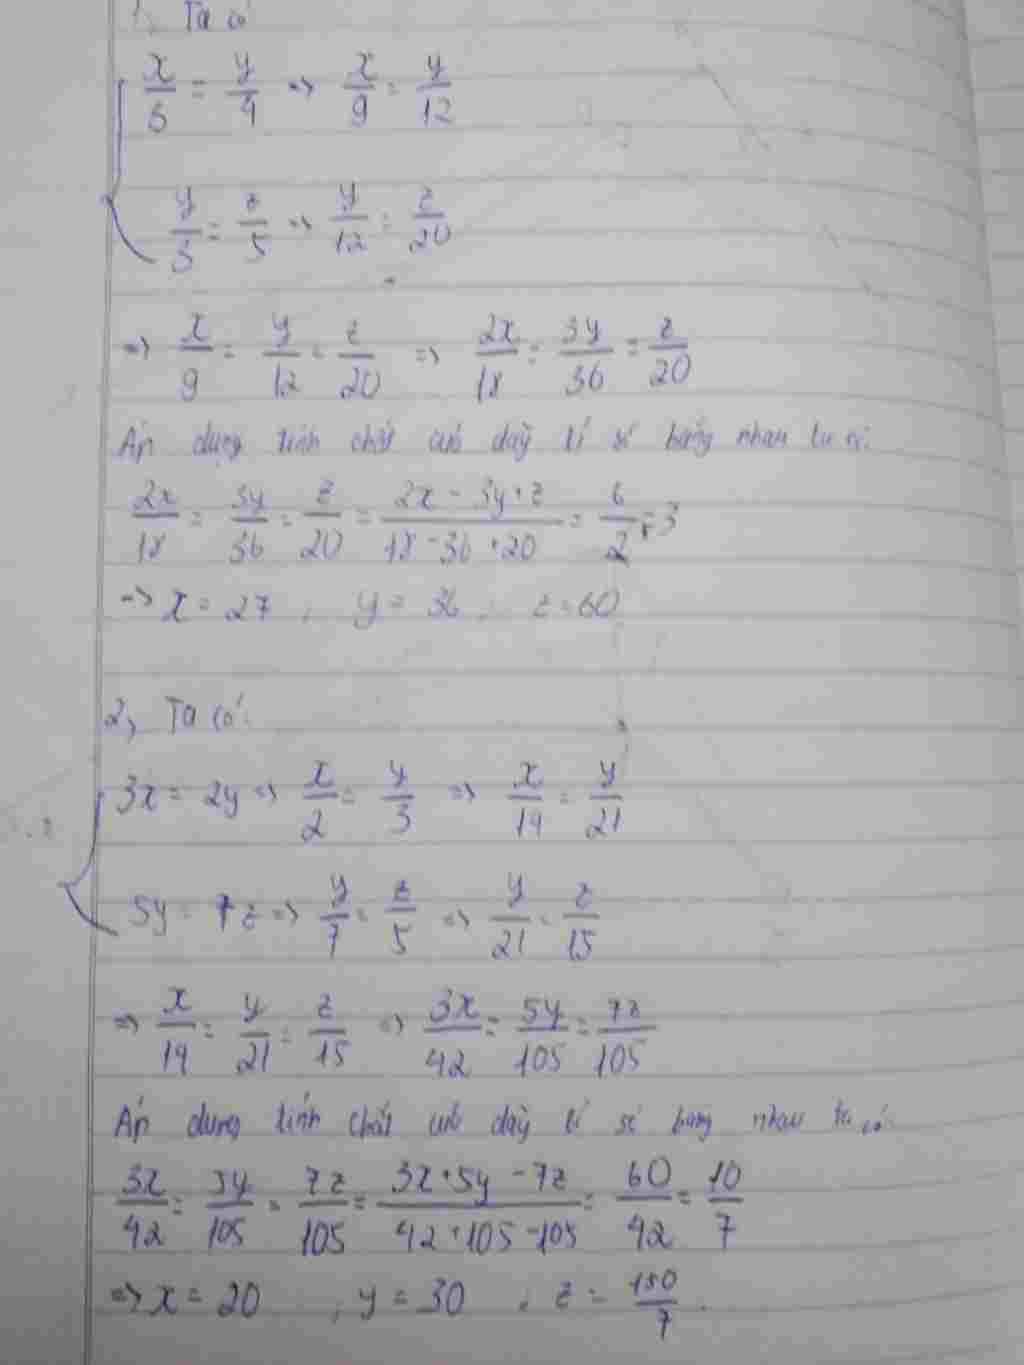 1, Ta có
x/3 = y/4 => x/9 = y/12
y/3 = z/5 => y/12 = z/20
=> x/9 = y/12 = z/20 => 2x/18 = 3y/36 = z/20
Áp dụng tính chất của dãy tỉ số bằng nhau ta có:
2x/18 = 3y/36 = z/20 = (2x - 3y + z)/(18 - 36 + 20) = 6/2 = 3
=> x = 27 ; y = 36 ; z = 60
2, Ta có:
3x = 2y => x/2 = y/3 => x/14 = y/21
5y = 7z => y/7 = z/5 => y/21 = z/15
=> x/14 = y/21 = z/15 => 3x/42 = 5y/105 = 7z/105
Áp dụng tính chất của dãy tỉ số bằng nhau ta có:
3x/42 = 5y/105 = 7z/105 = (3x + 5y - 7z)/(42 + 105 - 105) = 60/42 = 10/7
=> x = 20 , y = 30 , z = 150/7 .